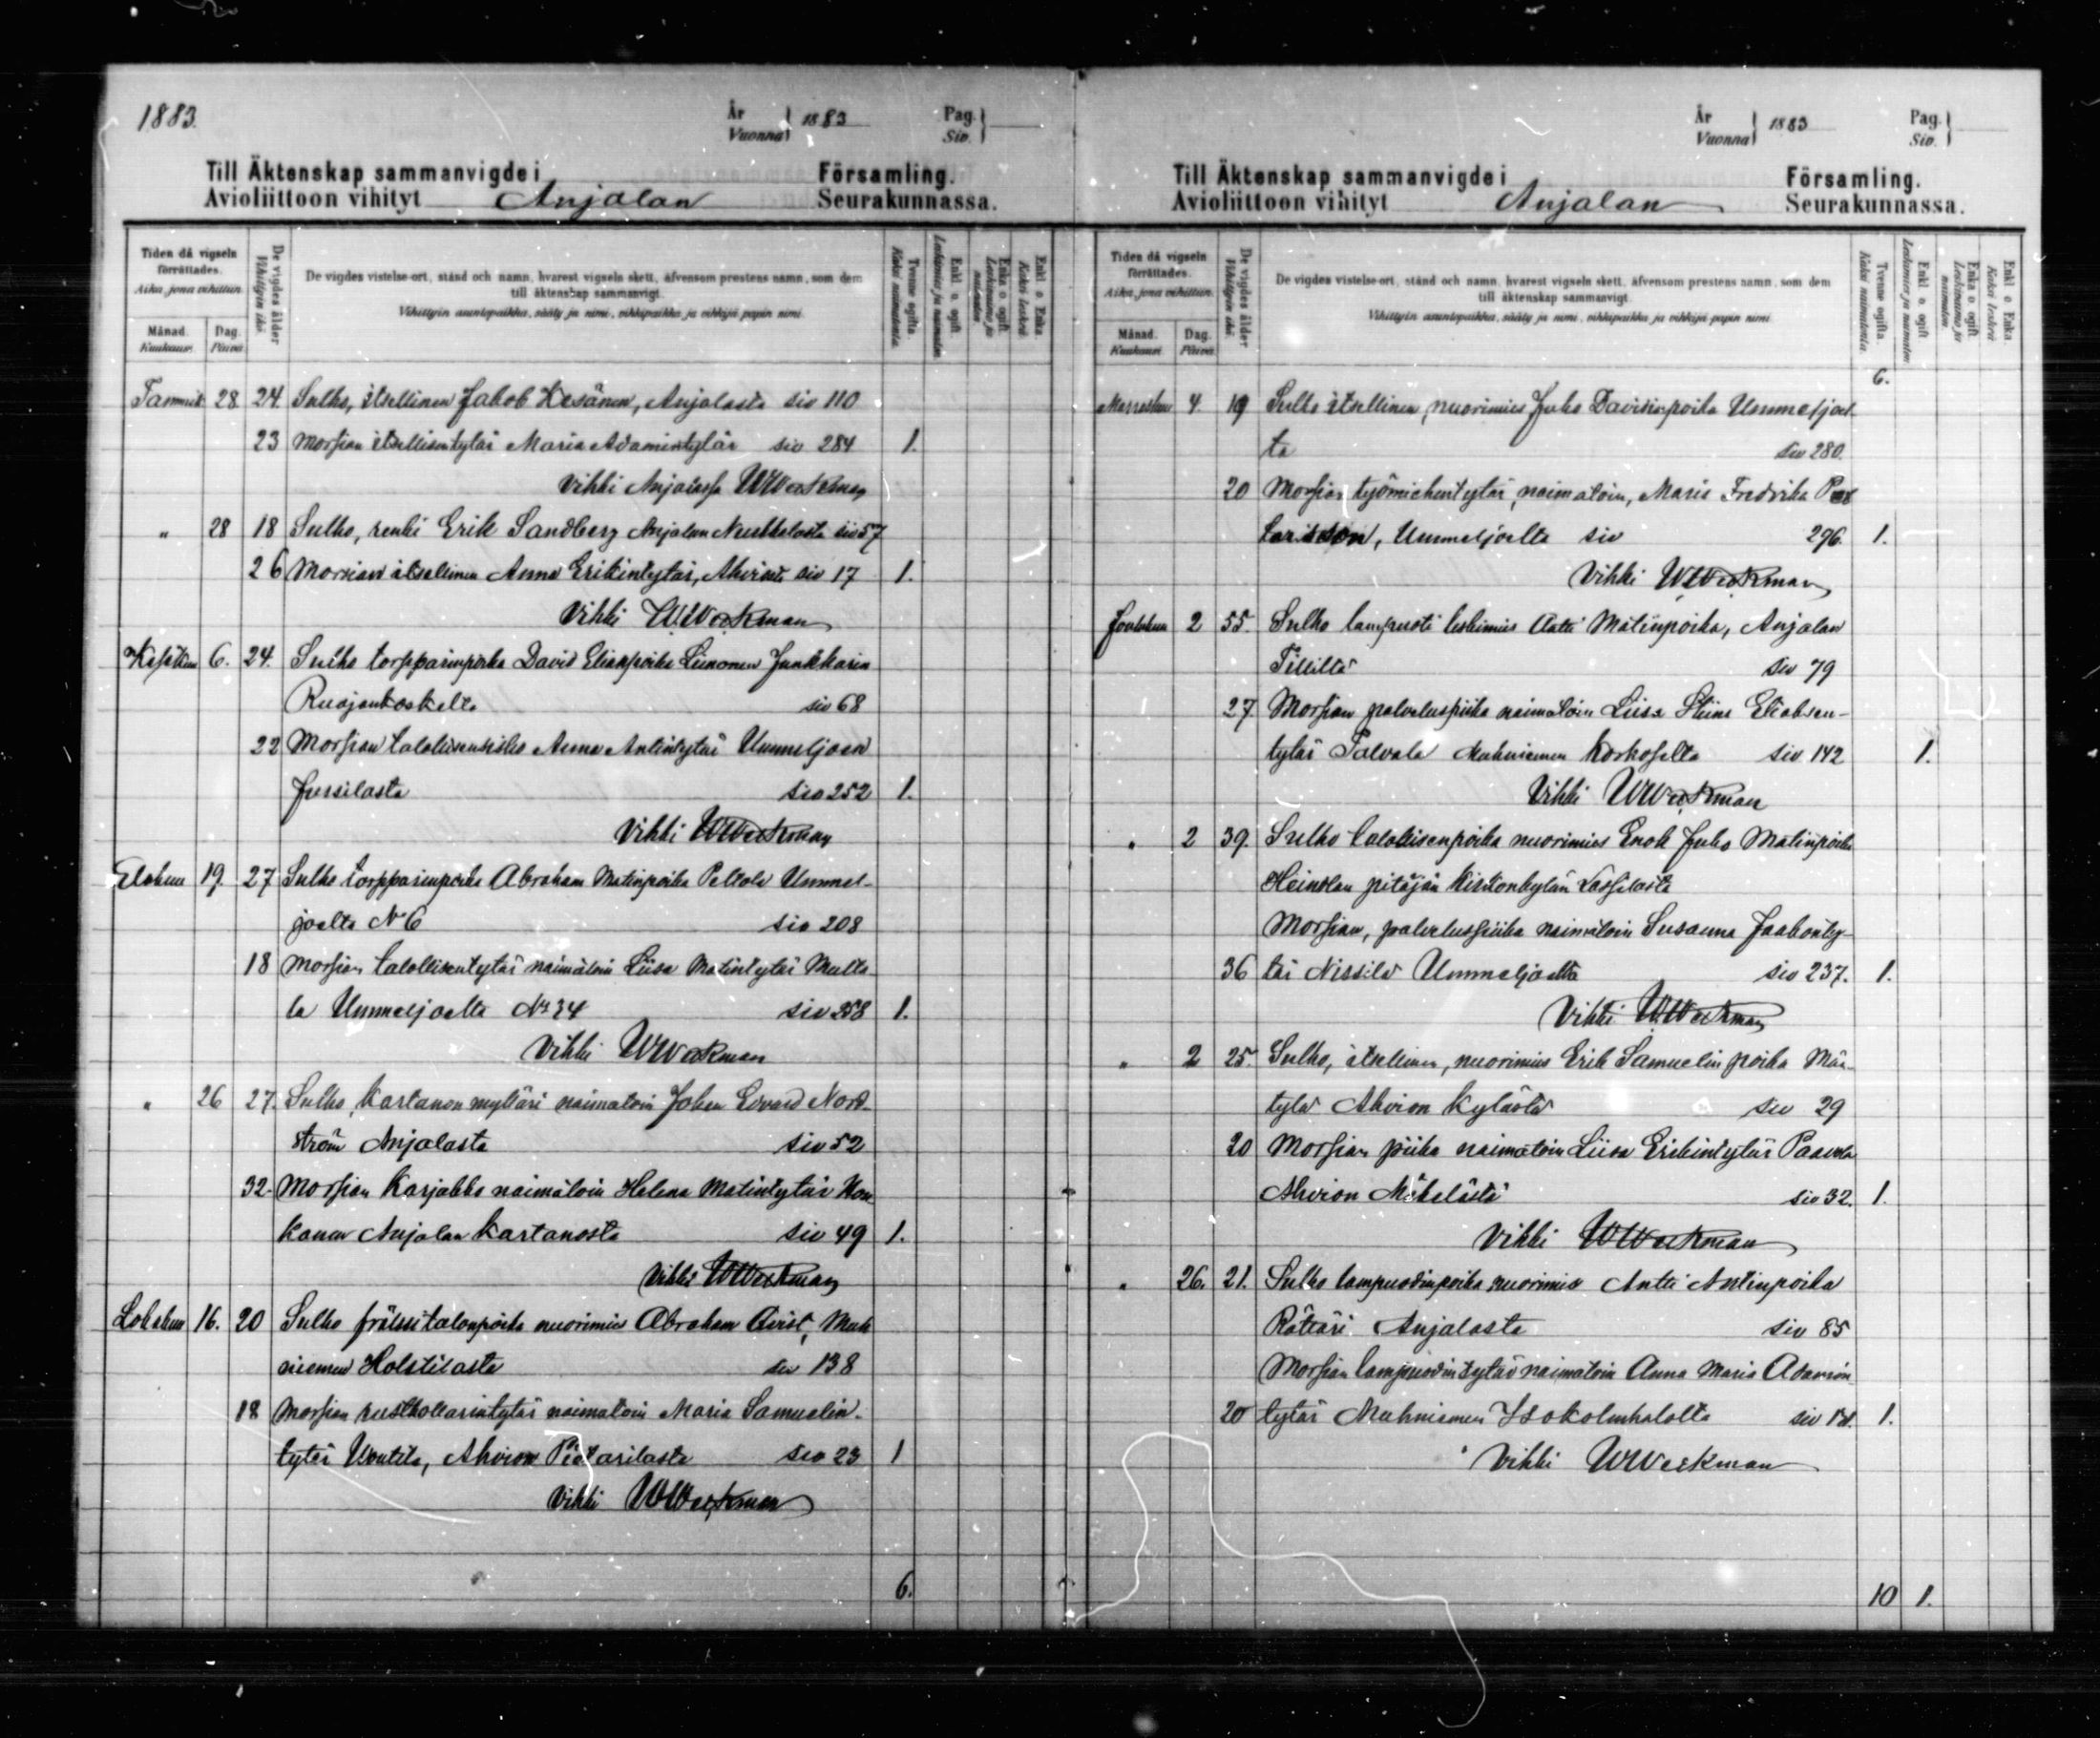 1883.
År
Vuonna
1883
Pag.
Siv.
Till Äktenskap sammanvigde i
Församling.
Avioliittoon vihityt
Anjalan
Seurakunnassa.
Tiden då vigseln förrättades.
Aika, jona vihittiin.
Månad.
Kuukausi.
Dag.
Päivä.
De vigdes ålder
Vihittyin ikä.
De vigdes vistelse-ort, stånd och namn, hvarest vigseln skett, äfvensom prestens namn, som dem
till äktenskap sammanvigt.
Vihittyin asuntopaikka, sääty ja nimi, vihkipaikka ja vihkijä papin nimi.
Tvenne ogifta.
Kaksi naimatonta.
Enkl. o. ogift.
Leskimies ja naimaton.
Enka o. ogift.
Leskivaimo ja naimaton.
Enkl. o. Enka.
Kaksi leskeä.
Tammik 28 24. Sulho, itsellinen Jakob Kesänen, Anjalasta siv 110
23 Morsian itsellisentytär Maria Adamintytär siv 284 1.
Vihki Anjalassa WWeckman
" 28 18 Sulho, renki Erik Sandberg Anjalan siv 57
26 Morsian itsellinen Anna Erikintytär, siv 17 1.
Vihki WWeckman
6. 24. Sulho torpparinpoika David Eliaspoika Liimonen Junkkarin
siv 68
22 Morsian talollisensisko Anna Antintytär Ummeljoen
Jussilasta siv 252 1.
Vihki WWeckman
Elokuu 19. 27 Sulho torpparinpoika Abraham Matinpoika Peltola Ummel-
joelta No 6 siv 208
18 Morsian talollisentytär naimatoin Liisa Matintytär Mutta
la Ummeljoelta No 34 siv 1.
Vihki WWeckman
" 26 27. Sulho, Kartanon mylläri naimatoin Johan Edvard Nord-
ström Anjalasta siv 52
32. Morsian Karjakko naimatoin Helena Matintytär
kanen Anjalan Kartanosta siv 49 1.
Vihki WWeckman
Lokakuu 16. 20 Sulho frälsitalonpoika nuorimies Abraham Qvist, Muh
niemen Holstilasta siv 138
18 Morsian rusthollarintytär naimatoin Maria Samuelin-
tytär Uutila, Ahvion Pietarilasta siv 23 1
Vihki WWeckman
6.
År
Vuonna
1883
Pag.
Siv.
Till Äktenskap sammanvigde i
Församling.
Avioliittoon vihityt
Anjalan
Seurakunnassa.
Tiden då vigseln förrättades.
Aika, jona vihittiin.
Månad.
Kuukausi.
Dag.
Päivä.
De vigdes ålder
Vihittyin ikä.
De vigdes vistelse-ort, stånd och namn, hvarest vigseln skett, äfvensom prestens namn, som dem
till äktenskap sammanvigt.
Vihittyin asuntopaikka, sääty ja nimi, vihkipaikka ja vihkijä papin nimi.
Tvenne ogifta.
Kaksi naimatonta.
Enkl. o. ogift.
Leskimies ja naimaton.
Enka o. ogift.
Leskivaimo ja naimaton.
Enkl. o. Enka.
Kaksi leskeä.
6.
Marraskuu 4. 19 Sulho itsellinen, nuorimies Juho Davidinpoika Ummeljoel
ta siv 280.
20 Morsian työmiehentytär, naimatoin, Maria Fredrika
Ummeljoelta siv 296. 1.
Vihki WWeckman
Joulukuu 2 55. Sulho lampuoti leskimies Antti Matinpoika, Anjalan
Tilliltä siv 79
27 Morsian palveluspiika naimatoin Liisa Stiina Eliaksen-
tytär Talvala Muhniemen siv 142 1.
Vihki WWeckman
" 2 39. Sulho talollisenpoika nuorimies Enok Juho Matinpoika
Heinolan pitäjän Kirkonkylän Lassilasta
Morsian, palveluspiika naimatoin Susanna Jaakonty-
36 tär Nissilä Ummeljoelta siv 237. 1.
Vihki WWeckman
" 2 25. Sulho, itsellinen, nuorimies Erik Samuelin poika Män-
tylä Ahvion kylästä siv 29
20 Morsian piika naimatoin Liisa Erikintytär Paavola
Ahvion Mäkelästä siv 32. 1.
Vihki WWeckman
" 26. 21. Sulho lampuodinpoika nuorimies Antti Antinpoika
Rättäri Anjalasta siv 85
Morsian lampuodintytär naimatoin Anna Maria Adamin
20 tytär Muhniemen siv 1.
Vihki WWeckman
10 1.